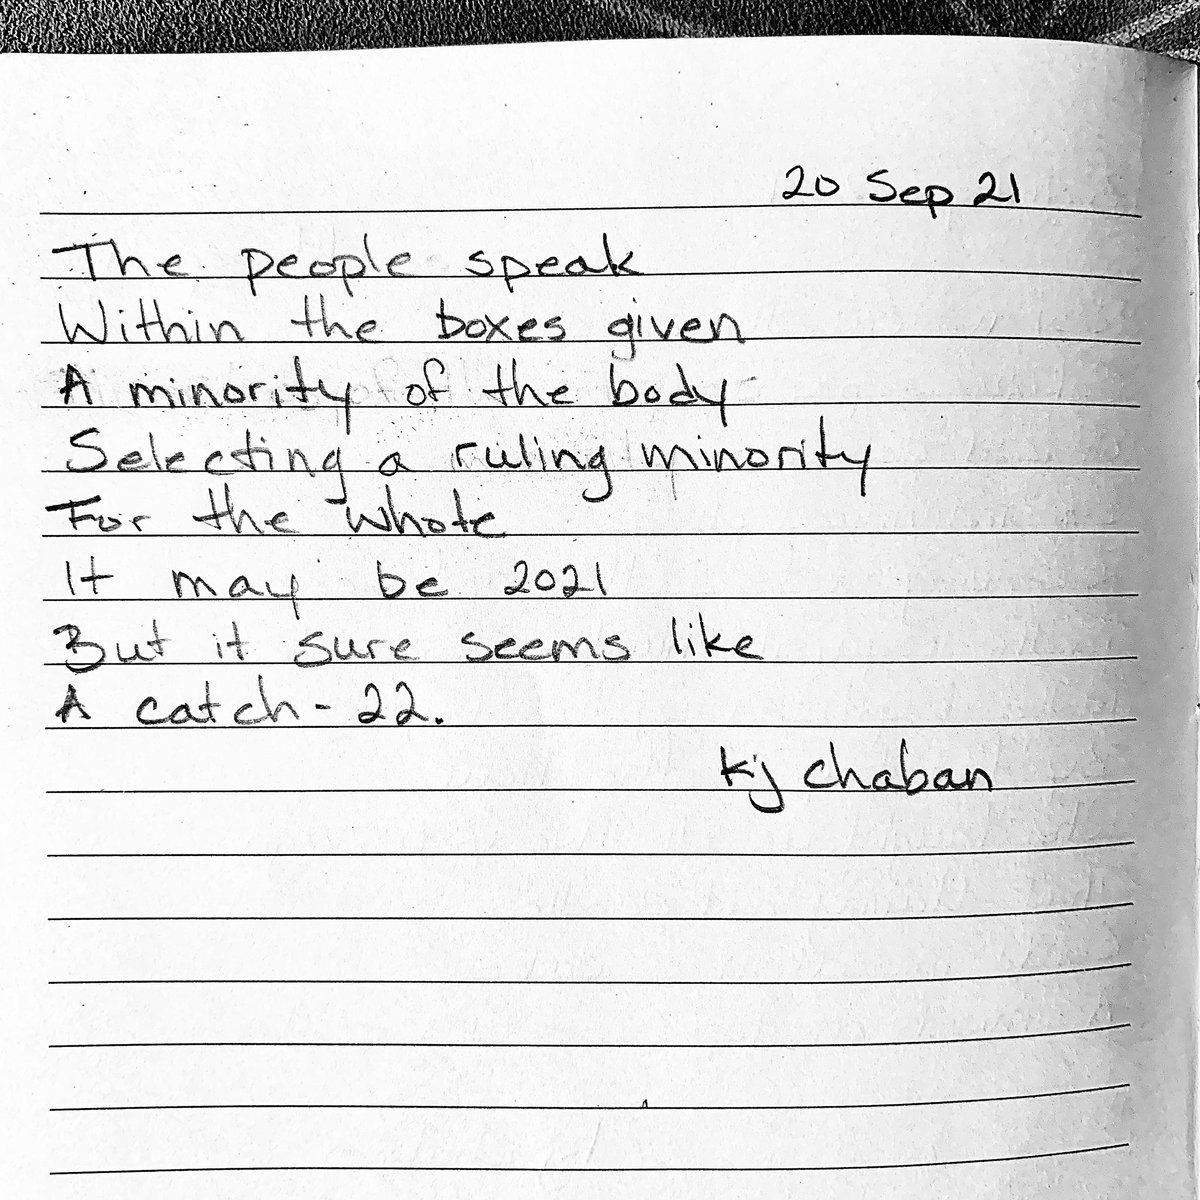 20 Sep 21
The people speak
Within the boxes given
A minority of the body
Selecting a ruling minority
For the whole
It may be 2021
But it sure seems like
A catch-22.
kj chaban